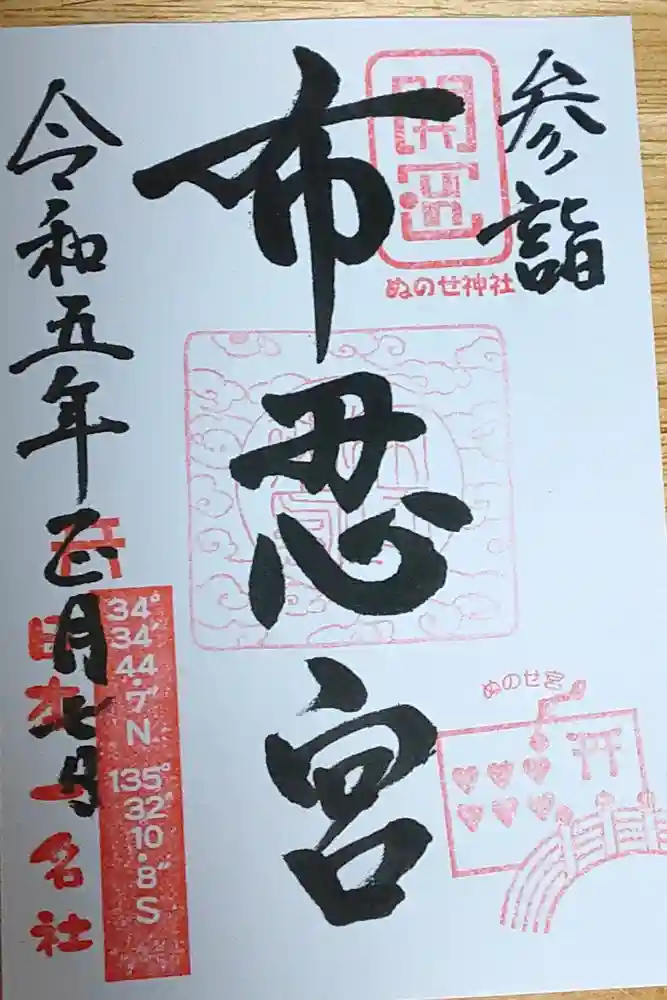 参詣
開運
ぬのせ神社
布忍宮
ぬのせ宮
令和五年正月七日
34°
34′
44.7″
N
135°
32″
10.8″
S
日本一名社